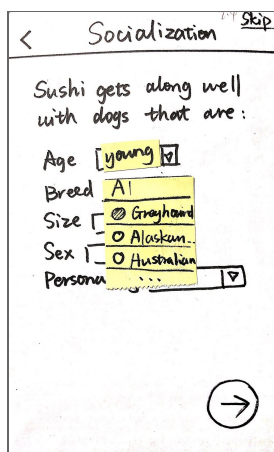 < Socialization Skip
Sushi gets along well
with dogs that are:
Age young
Breed Al
Greyhound
Size
Alaskan..
Sex
Australian
Persona
...